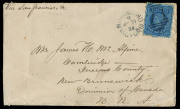 Via San Francisco
Mr. James H. McAlpine,
Cambridge
Queens County,
New Brunswick
Dominion of Canada